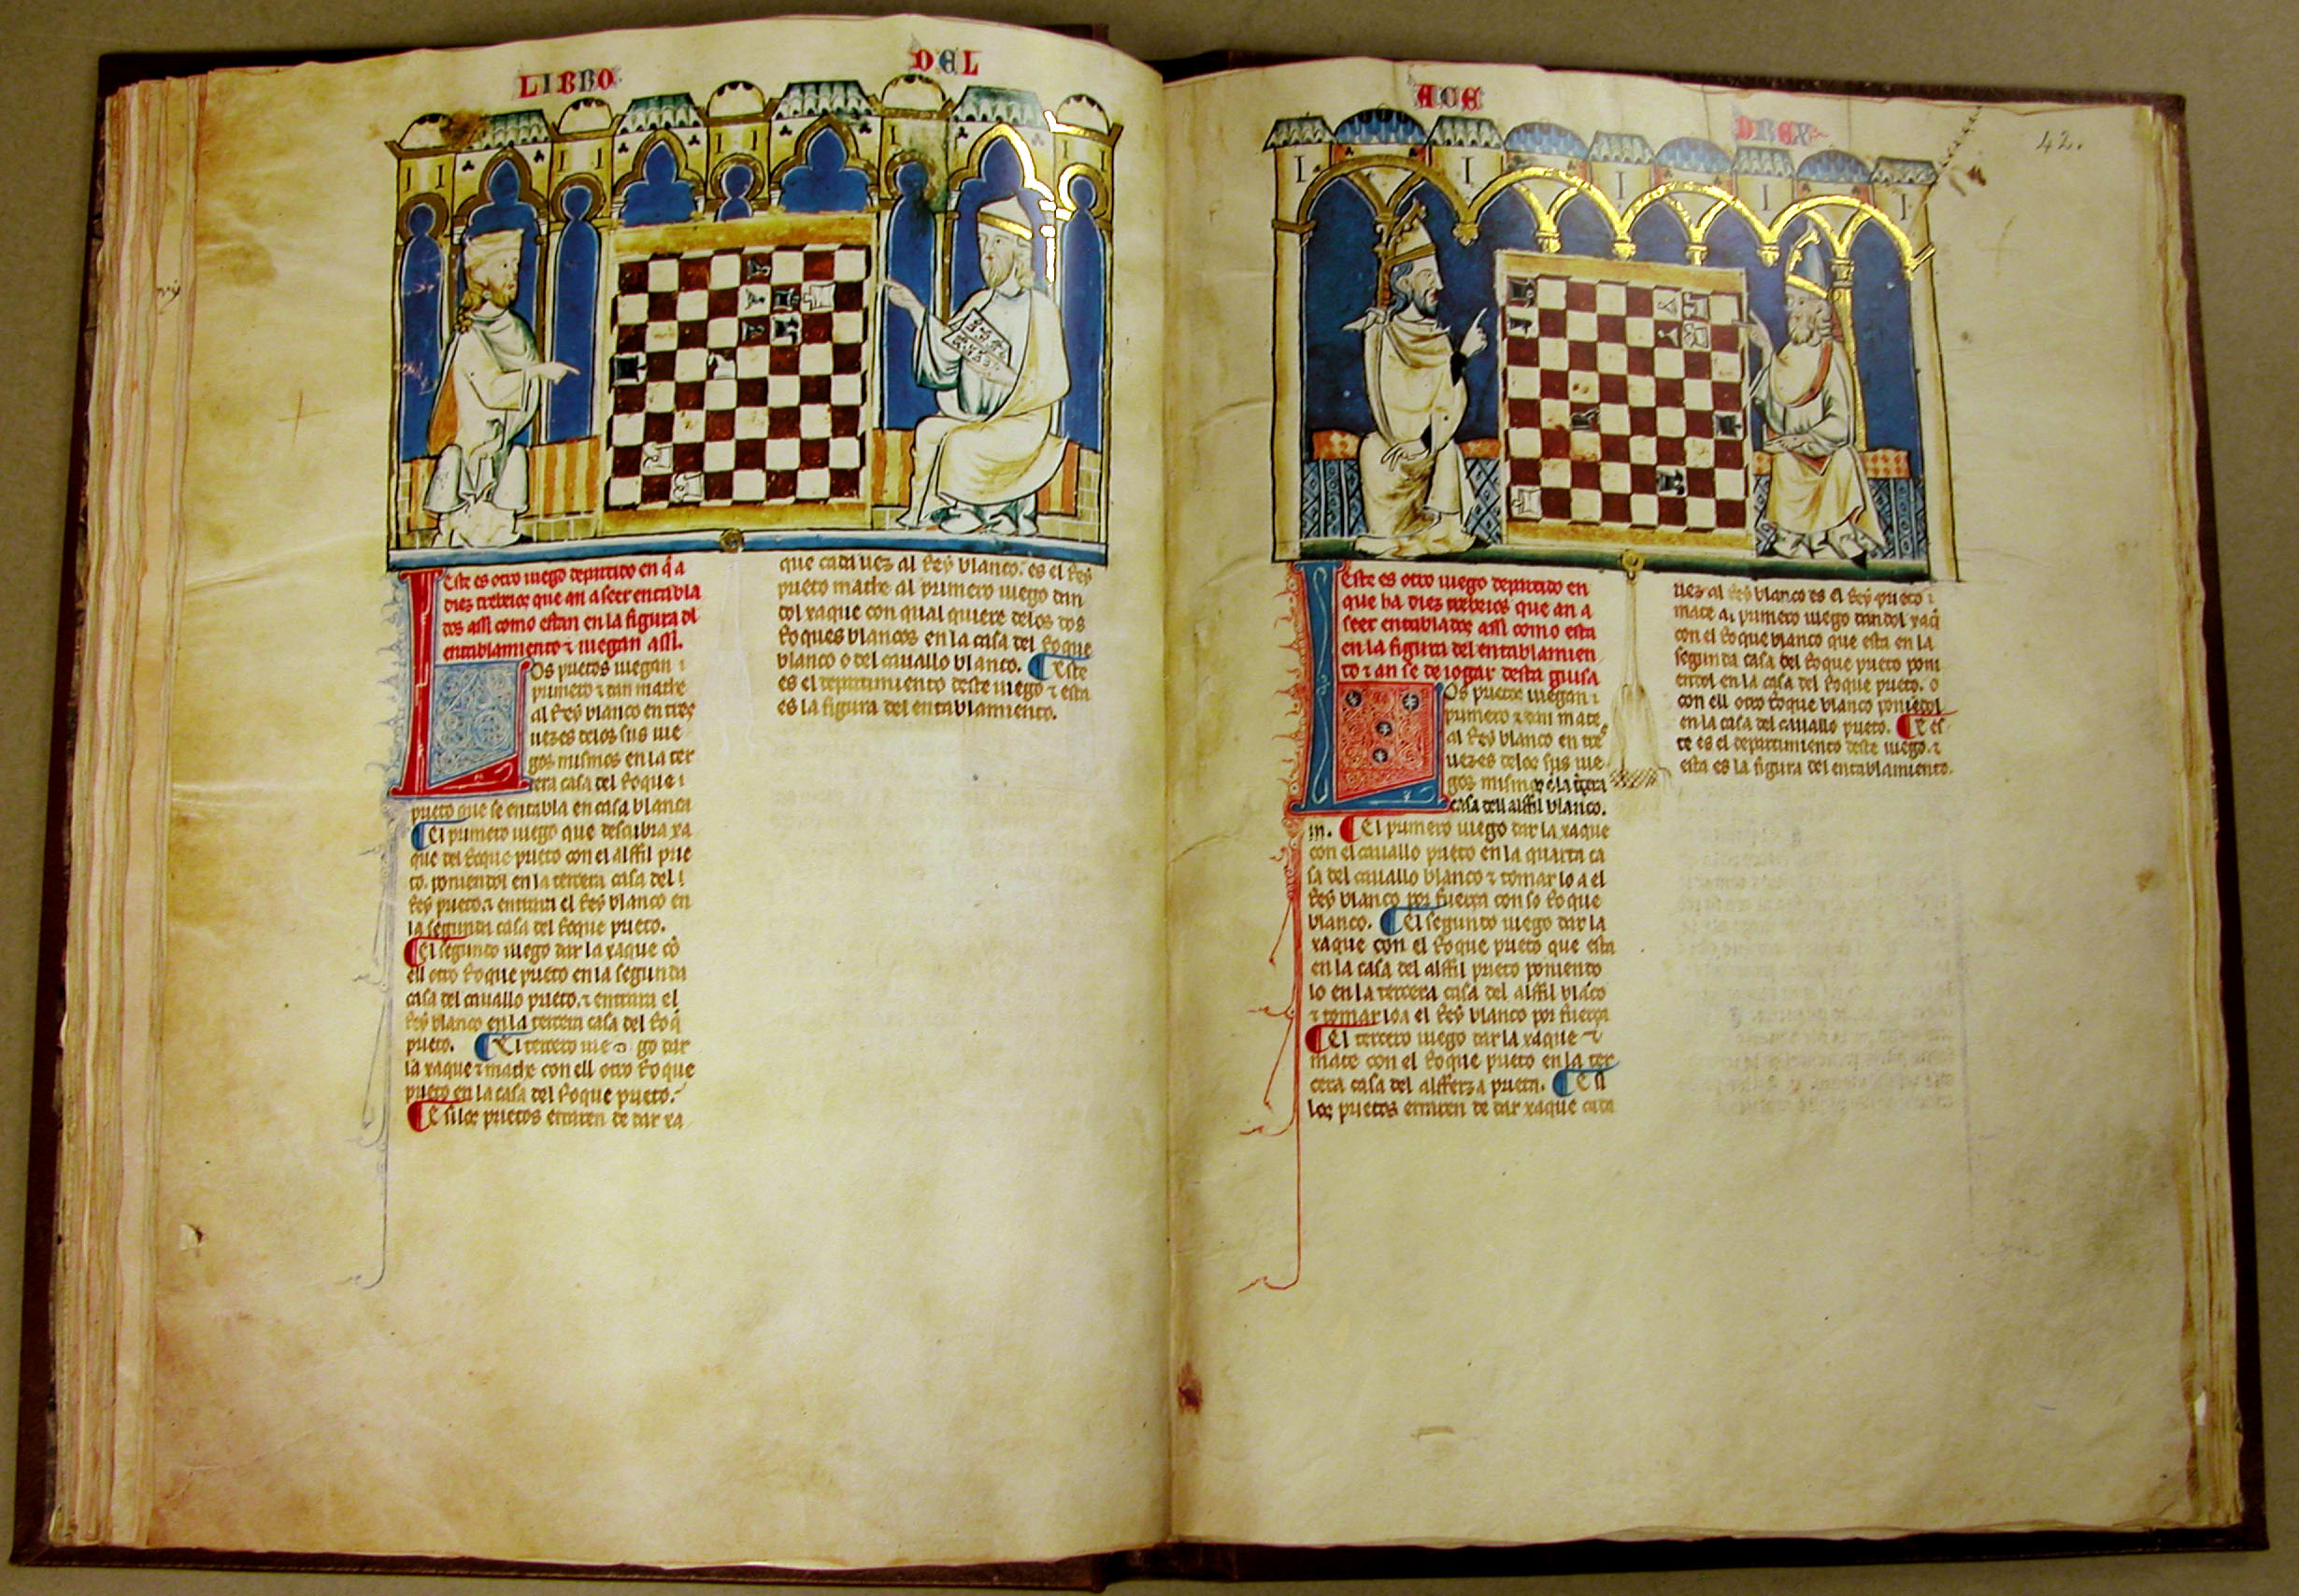 LIBRO DEL
Este es otro iuego departido en q̃ a
diez trebeios que an a seer entabla
dos assi como estan en la figura dl
entablamiento ⁊ iuegan assi.
Los prietos iuegan
primero ⁊ dan mathe
al Rey blanco en tres
uezes delos sus iue
gos mismos en la ter
cera casa del Roque
prieto que se entabla en casa blanca
El primero iuego que descubra xa
que del Roque prieto con el alffil prie
to. poniendol en la tercera casa del
Rey prieto. ⁊ entrara el Rey blanco en
la segunda casa del Roque prieto.
El segundo iuego dar la xaque cõ
ell otro Roque prieto en la segunda
casa del cauallo prieto. ⁊ entrara el
Rey blanco en la tercera casa del Roq̃
prieto. El tercero iue go dar
la xaque ⁊ mathe con ell otro Roque
prieto en la casa del Roque prieto.
E si los prietos erraren de dar xa
que cada uez al Rey blanco. es el Rey
prieto mathe al primero iuego dan
dol xaque con qual quiere delos dos
Roques blancos en la casa del Roque
blanco o del cauallo blanco. Este
es el departimiento deste iuego ⁊ esta
es la figura del entablamiento.
ACE DREX
42.
Este es otro iuego departido en
que ha diez trebeios que an a
seer entablados assi como esta
en la figura del entablamien
to ⁊ an se de iogar desta guisa
Los prietos iuegan
primero ⁊ dan mate
al Rey blanco en tres
uezes delos sus iue
gos mismos ẽ la tercera
casa dell alffil blanco.
El primero iuego dar la xaque
con el cauallo prieto en la quarta ca
sa del cauallo blanco ⁊ tomar lo a el
Rey blanco por fuerça con so Roque
blanco. El segundo iuego dar la
xaque con el Roque prieto que esta
en la casa del alffil prieto poniendo
lo en la tercera casa del alffil blãco
⁊ tomar loa el Rey blanco por fuerça
El tercero iuego dar la xaque ⁊
mate con el Roque prieto en la ter
cera casa del alfferza prieta. E si
los prietos erraren de dar xaque cada
uez al Rey blanco es el Rey prieto
mate al primero iuego dandol xaq̃
con el Roque blanco que esta en la
segunda casa del Roque prieto poni
endol en la casa del Roque prieto. o
con ell otro Roque blanco poniedol
en la casa del cauallo prieto. E es
te es el departimiento deste iuego. ⁊
esta es la figura del entablamiento.